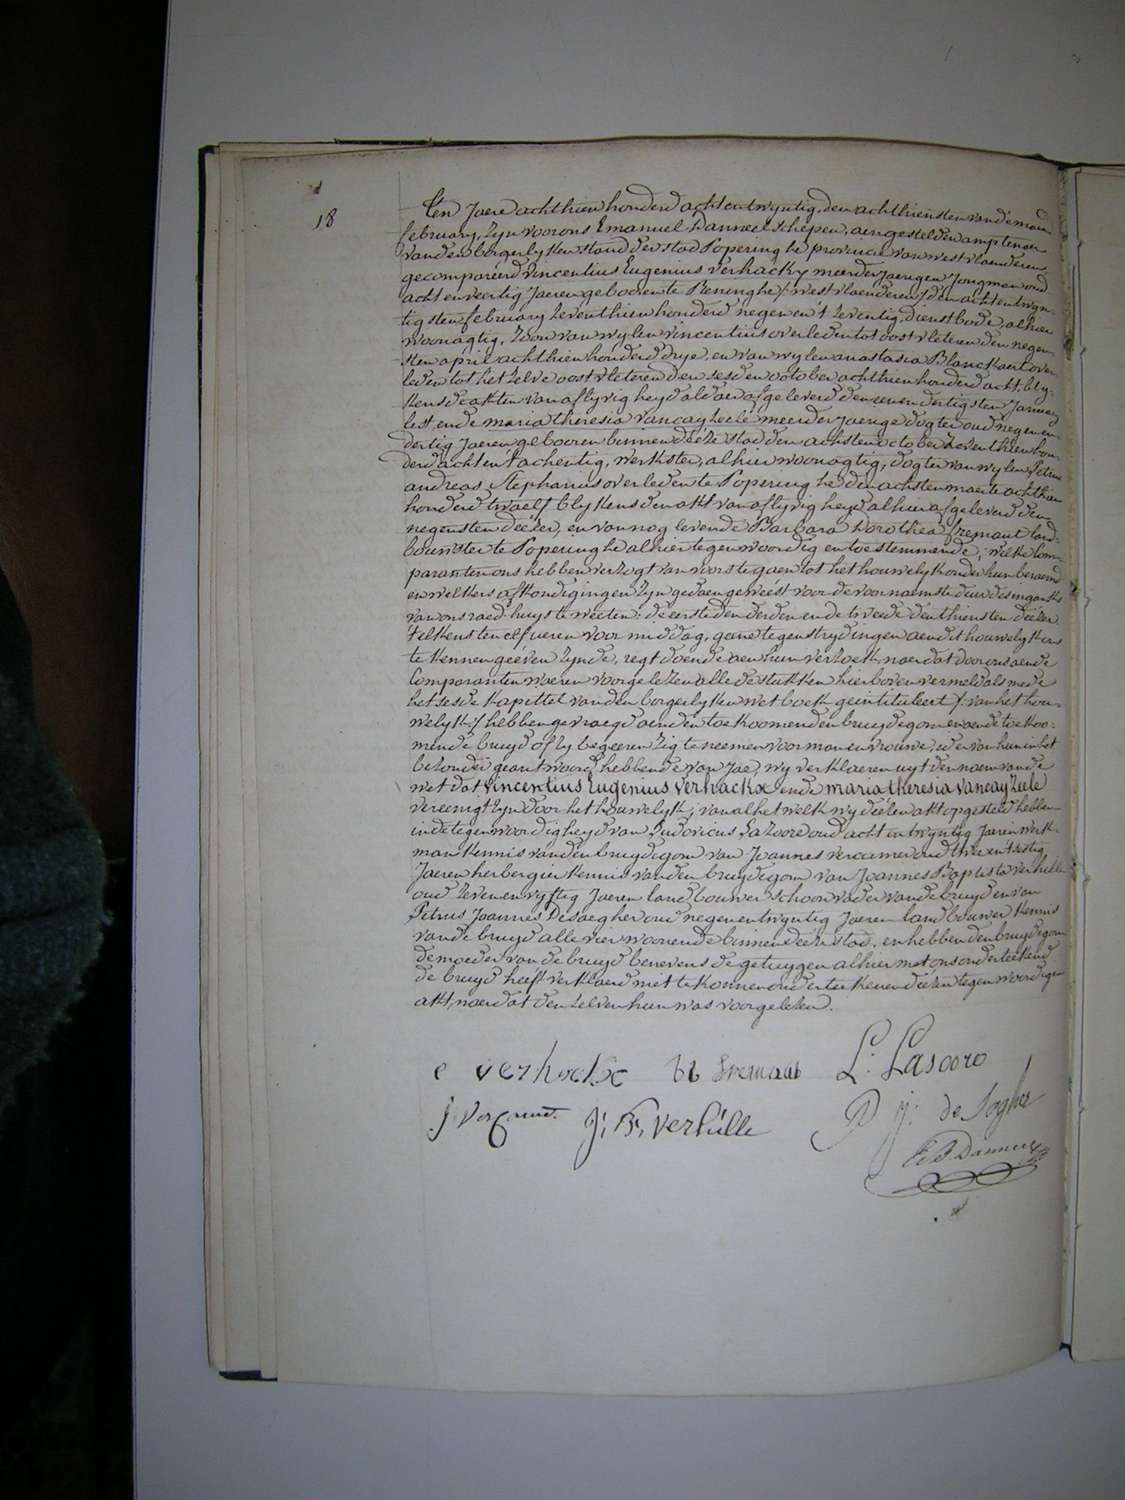 18
Ten Jaere achthien honderd achtentwyntig, den achthiensten van de maend
february, zyn voor ons Emanuel Danneel schepen, aengestelden amptenaer
van den borgerlyken stand der stad Poperinghe provincie van westvlaenderen
gecompareerd vincentius Eugenius verhackx meerderjaerigen Jongman oud
acht en veertig Jaeren geboren te Reninghe /:westvlaenderen:/ den achtentwyn-
tigsten february zeventhien honderd negen en 't zeventig, dienstbode, alhier
woonagtig, zoon van wylen vincentius overleden tot oostvleteren den negen-
sten april achthien honderd drye, en van wylen anastasia Blanckaert over-
leden tot het zelve oostvleteren den sesden october achthien honderd acht, bly-
kens de akten van aflyvigheyd aldaer afgeleverd den eenendertigsten January
lest, ende maria theresia vancayzeele meerderjaerige dogter oud negen en
dertig Jaeren geboren binnen deéze stad den achsten october zeventhien hon-
derd acht en 't achentig, werkster, alhier woonagtig, dogter van wylen Petrus
andreas Stephanus overleden te Poperinghe den achsten maerte achthien
honderd twaelf blykens den akt van aflyvigheyd alhier afgeleverd den
negensten deézer, en van nog levende Barbara Dorothea fremaut land-
bouwster te Poperinghe alhier tegenwoordig en toestemmende; welke com-
paranten ons hebben verzogt van voorts te gaen tot het houwelyk onder hun beraemd
en welkers afkondigingen zyn gedaen geweést voor de voornaemste deur des ingangks
van ons raed-huys te weéten: de eerste den derden ende tweede den thiensten deézer
telkens ten elf ueren voor middag, geene tegenstrydingen aen dit houwelyk ons
te kennen geéven zynde, regt doende aen hun verzoek, naer dat door ons aen de
Comparanten waeren voorgelezen alle de stukken hier boven vermeld als mede
het sesde Kapittel van den borgerlyken wetboek geintituleert /:van het hou-
welyk:/ hebben gevraegd aen den toekoomenden bruydegom en aen de toekoo-
mende bruyd of zy begeeren zig te neemen voor man en vrouwe, ider van hun in het
bezonder geantwoord hebbende van Jae, wy verklaeren uyt den naem van de
wet dat vincentius Eugenius verhackx ende maria theresia vancayzeele
vereenigt zyn door het houwelyk; van al het welk wy deézen akt opgesteld hebben
in de tegenwoordigheyd van Ludovicus Lazoore oud acht en twyntig Jaeren werk-
man kennis van den bruydegom van Joannes vercamer oud twee en tsestig
Jaeren herbergier kennis van den bruydegom van Joannes Baptista verhille
oud zeven en vyftig Jaeren landbouwer schoonvader van de bruyd en van
Petrus Joannes Desaegher oud negen en twyntig Jaeren landbouwer kennis
van de bruyd alle vier woonende binnen deéze stad, en hebben den bruydegom
de moeder van de bruyd benevens de getuygen alhier met ons onderteekend
de bruyd heeft verklaerd niet te konnen onderteekenen deézen tegenwoordigen
akt, naer dat den zelven hun was voorgelezen.
e verhackx
L: Lasooro
J: B, verhille
P j: de Sagher